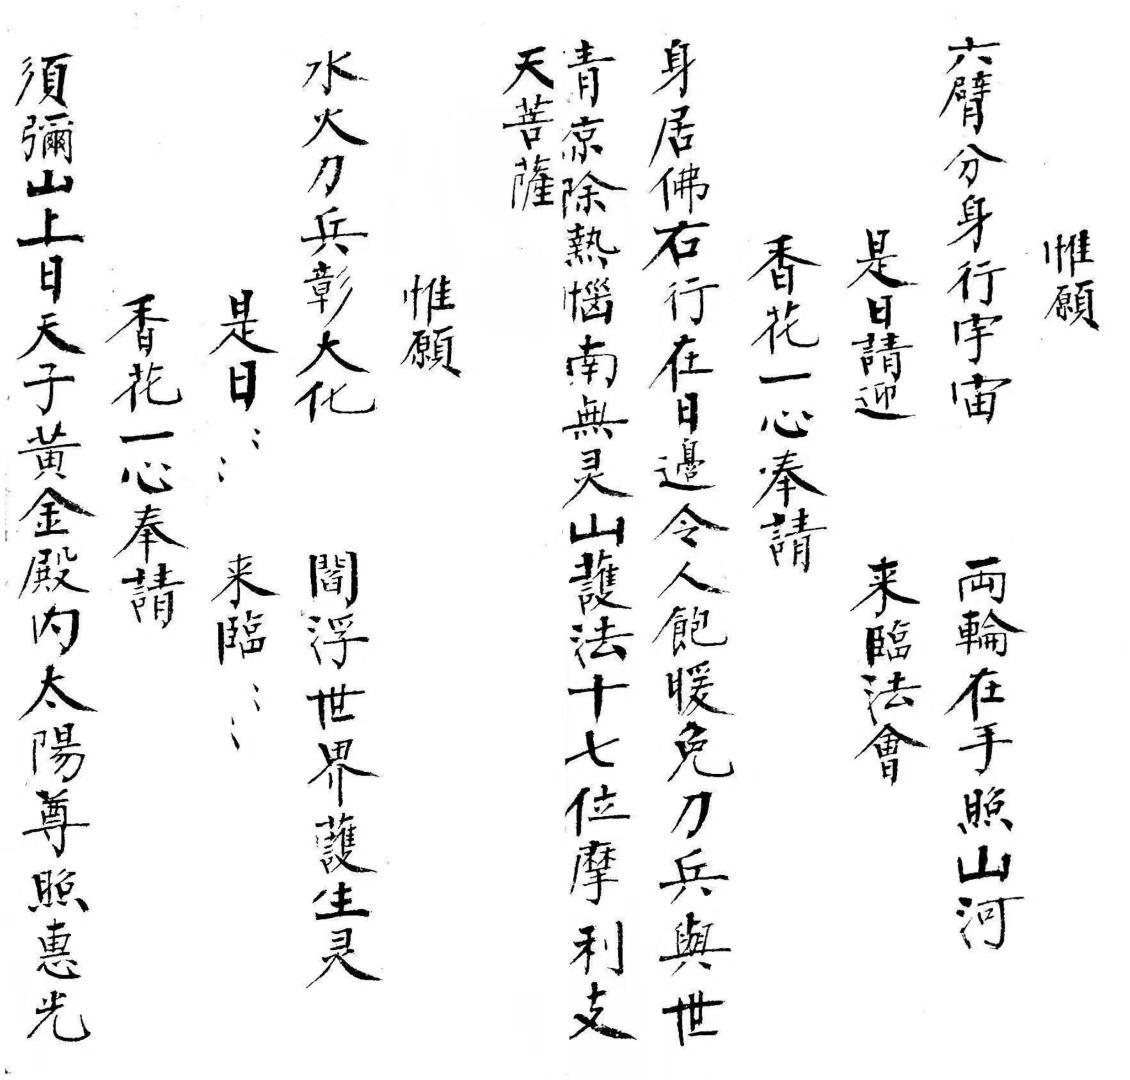 惟願
六臂分身行宇宙 両輪在手照山河
是日請迎 来臨法會
香花一心奉請
身居佛右行在日邊令人飽暖免刀兵與世
青凉除熱惱南無灵山護法十七位摩利支
天菩薩
惟願
水火刀兵彰大化 閻浮世界護生灵
是日〻〻 来臨〻〻
香花一心奉請
須彌山上日天子黃金殿内太陽尊照惠光